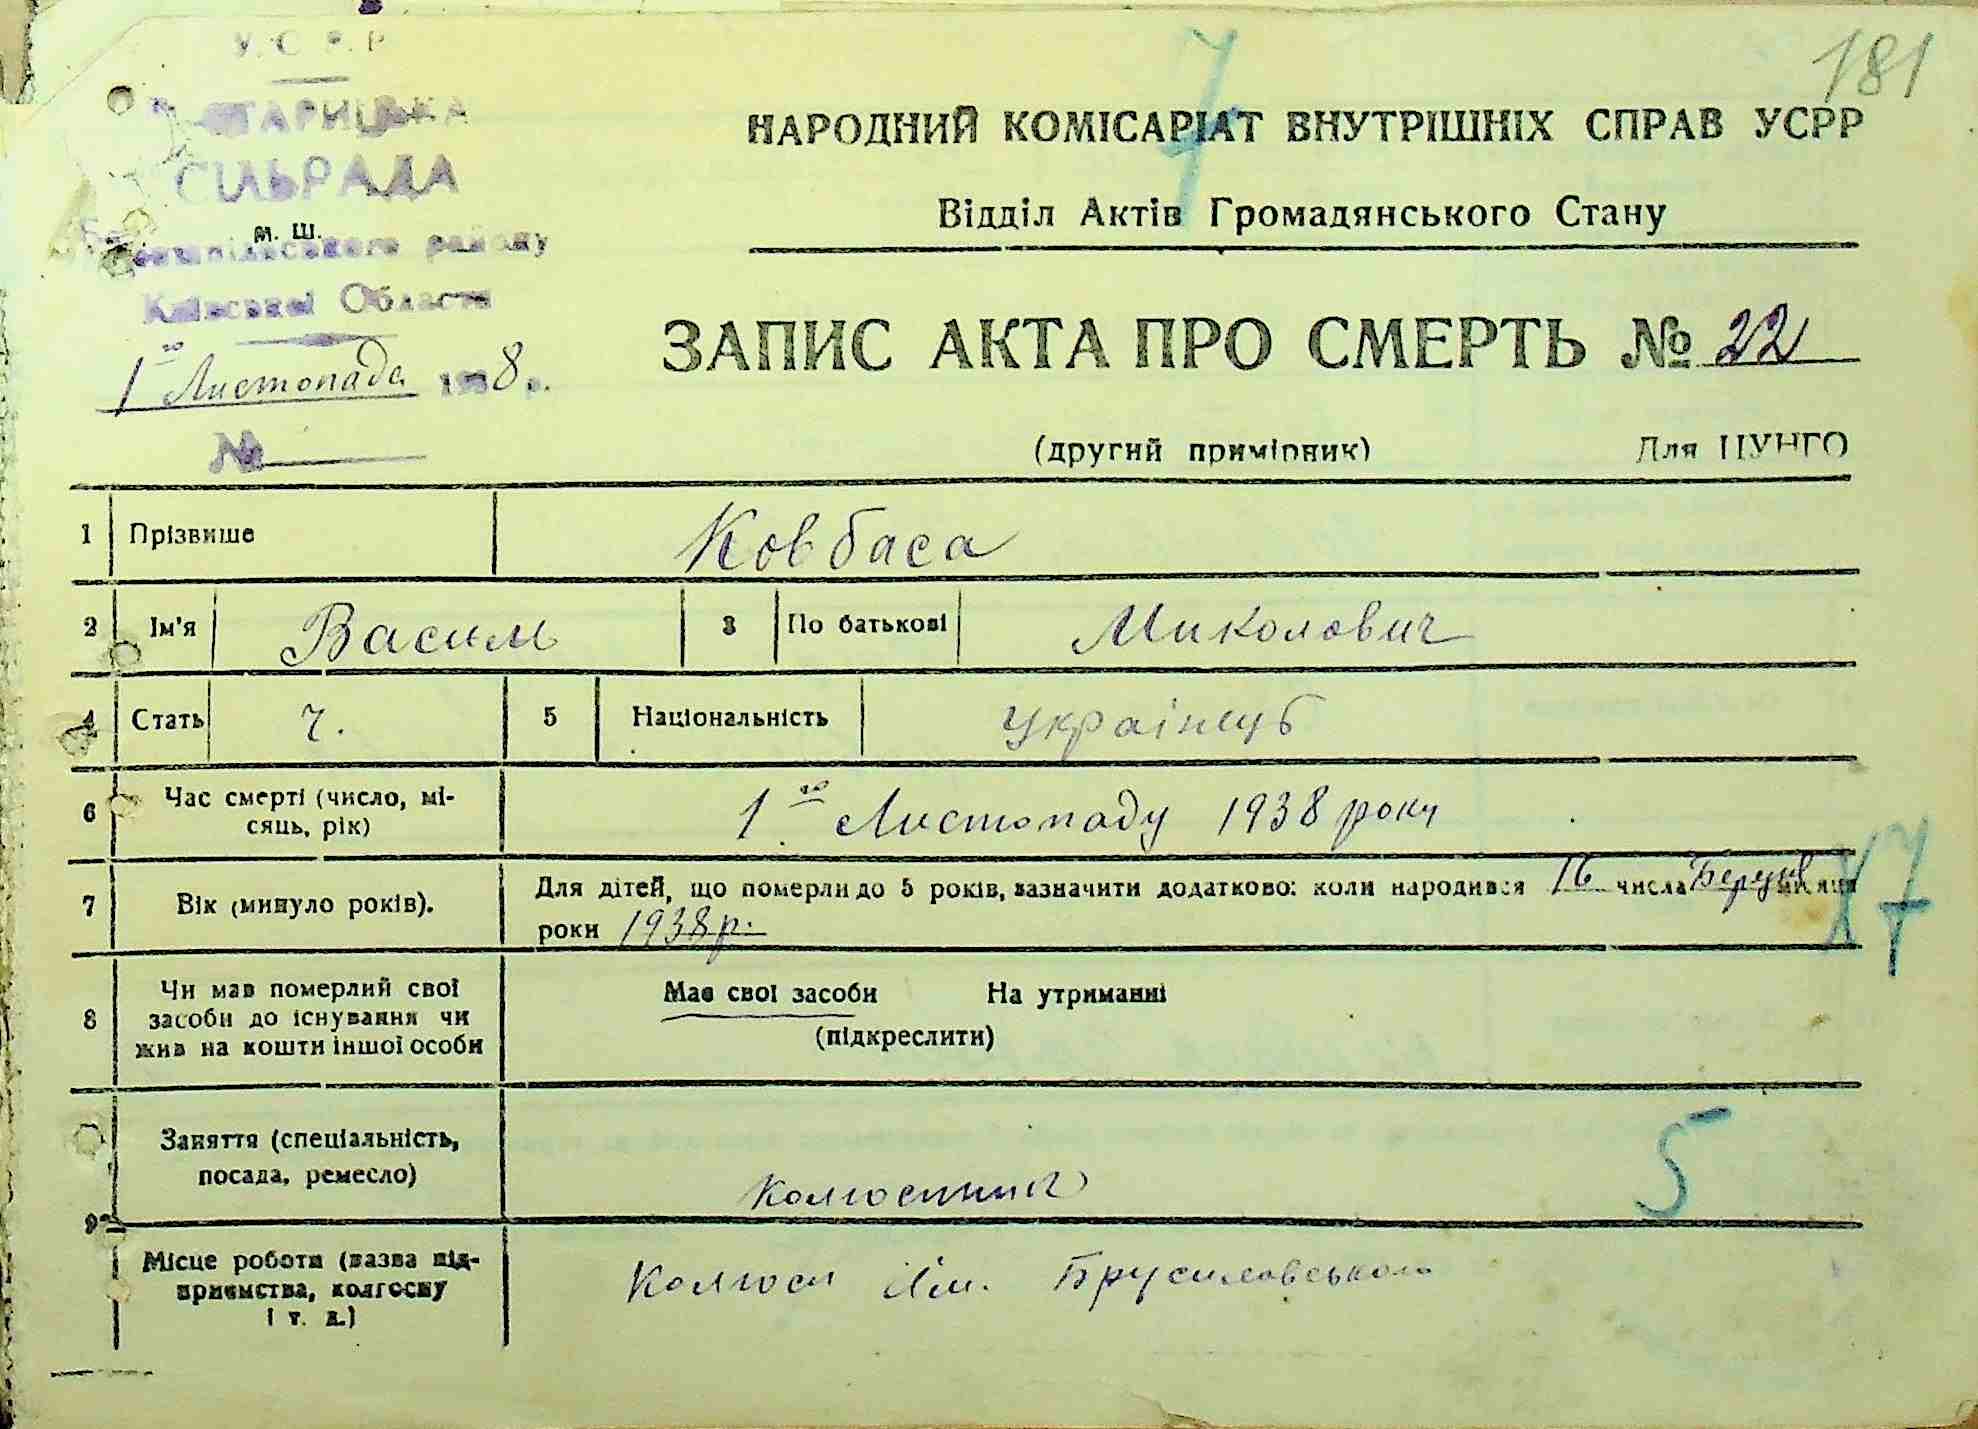 181
7
У.С.Р.Р
СТАРИЦЬКА
СІЛЬРАДА
м. ш.
Бориспільського району
Київської Области
1го Листопада 1938 р.
№
НАРОДНИЙ КОМІСАРІАТ ВНУТРІШНІХ СПРАВ УСРР
Відділ Актів Громадянського Стану
ЗАПИС АКТА ПРО СМЕРТЬ № 22
(другий примірник) Для ЦУНГО
1 Прізвище Ковбаса
2 Ім'я Василь 3 По батькові Миколович
4 Стать ч. 5 Національність Українець
6 Час смерті (число, мі-
сяць, рік) 1го Листопаду 1938 року
7 Вік (минуло років). Для дітей, що померли до 5 років, зазначити додатково: коли народився 16 числа Березня місяця
роки 1938 р.
17
8 Чи мав померлий свої
засоби до існування чи
жив на кошти іншої особи
Має свої засоби На утриманні
(підкреслити)
9 Заняття (спеціальність,
посада, ремесло) колгоспник
5
Місце роботи (назва під-
приємства, колгоспу
і т. д.) Колгосп Ім. Брусиловського